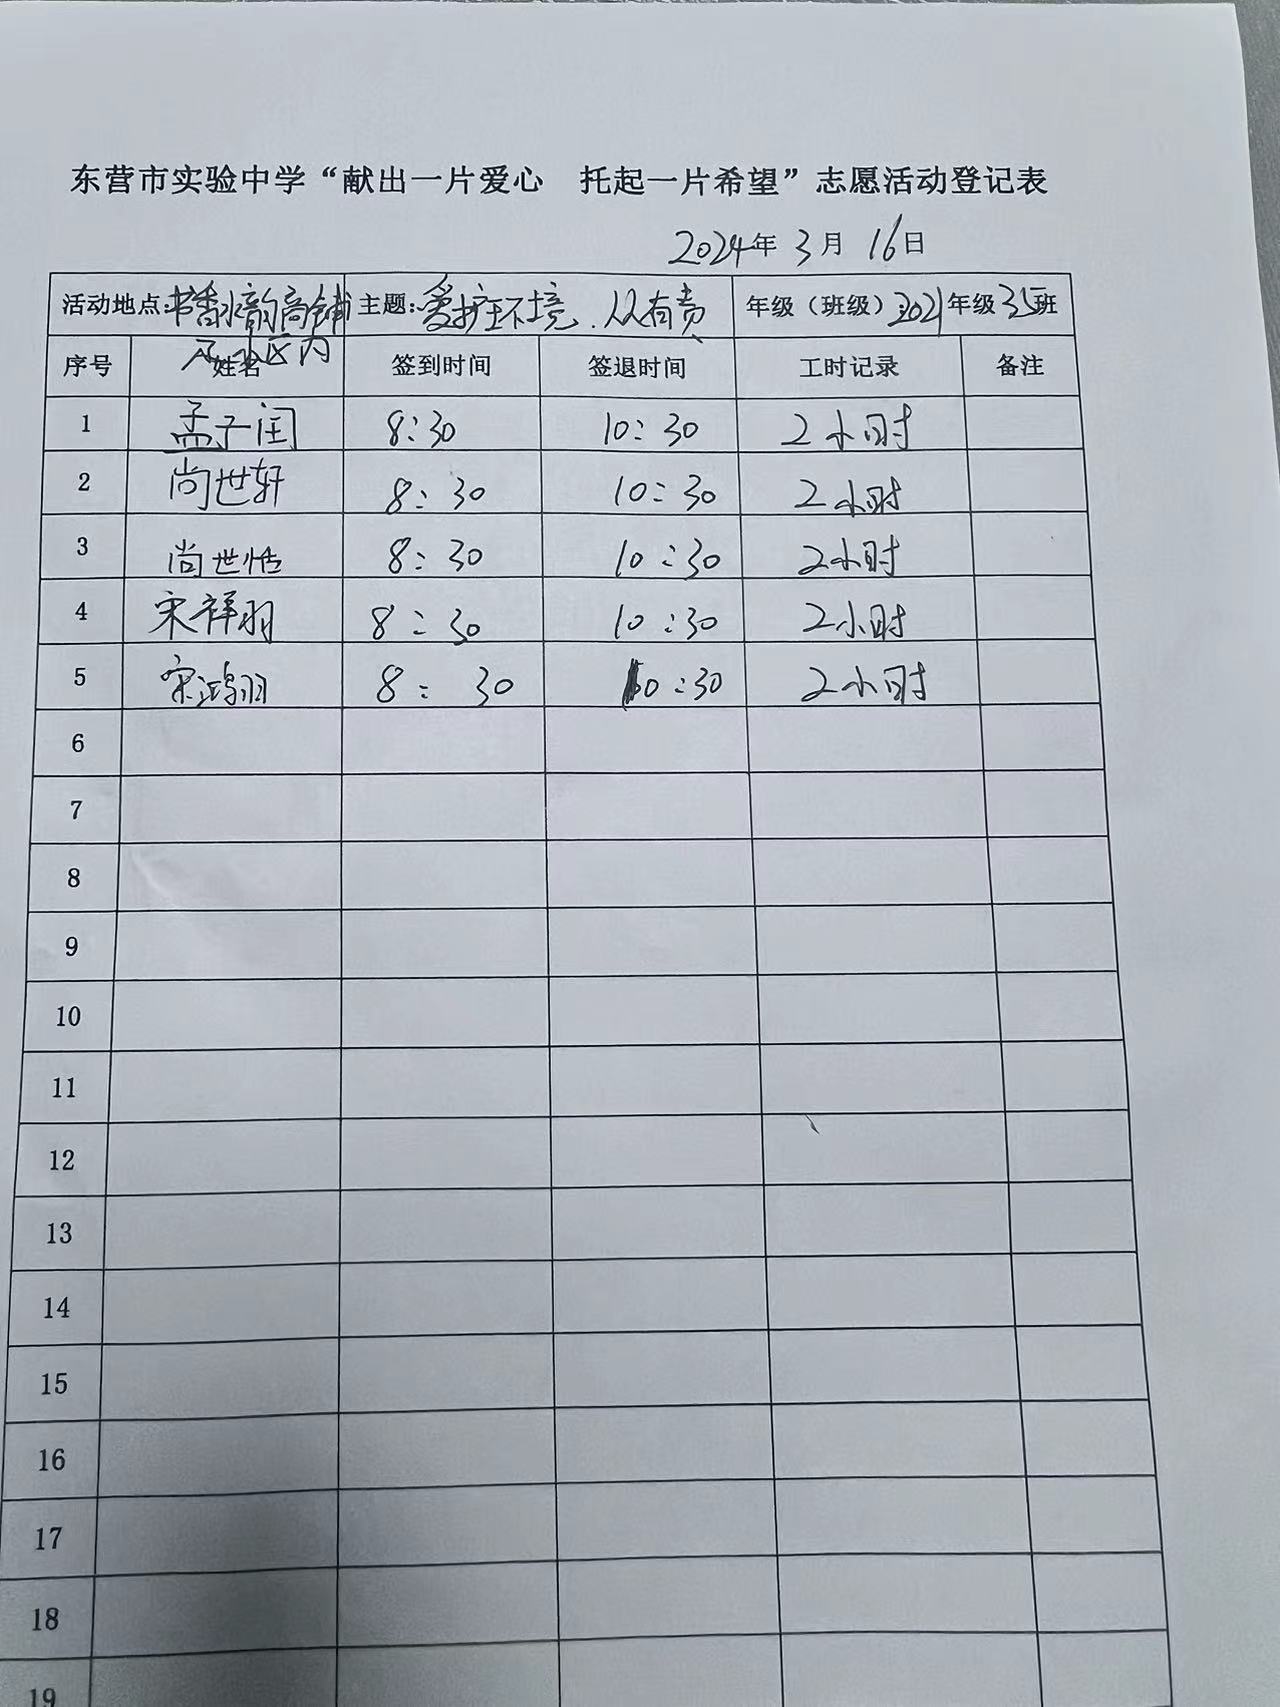 东营市实验中学“献出一片爱心 托起一片希望”志愿活动登记表
2024年 3月 16日
活动地点:书香水韵商铺 主题:爱护环境.从有责 年级(班级)2021年级35班
及小区内
序号 姓名 签到时间 签退时间 工时记录 备注
1 孟子闰 8:30 10:30 2小时
2 尚世轩 8:30 10:30 2小时
3 尚世恬 8:30 10:30 2小时
4 宋祥羽 8:30 10:30 2小时
5 宋鸿羽 8:30 10:30 2小时
6
7
8
9
10
11
12
13
14
15
16
17
18
19